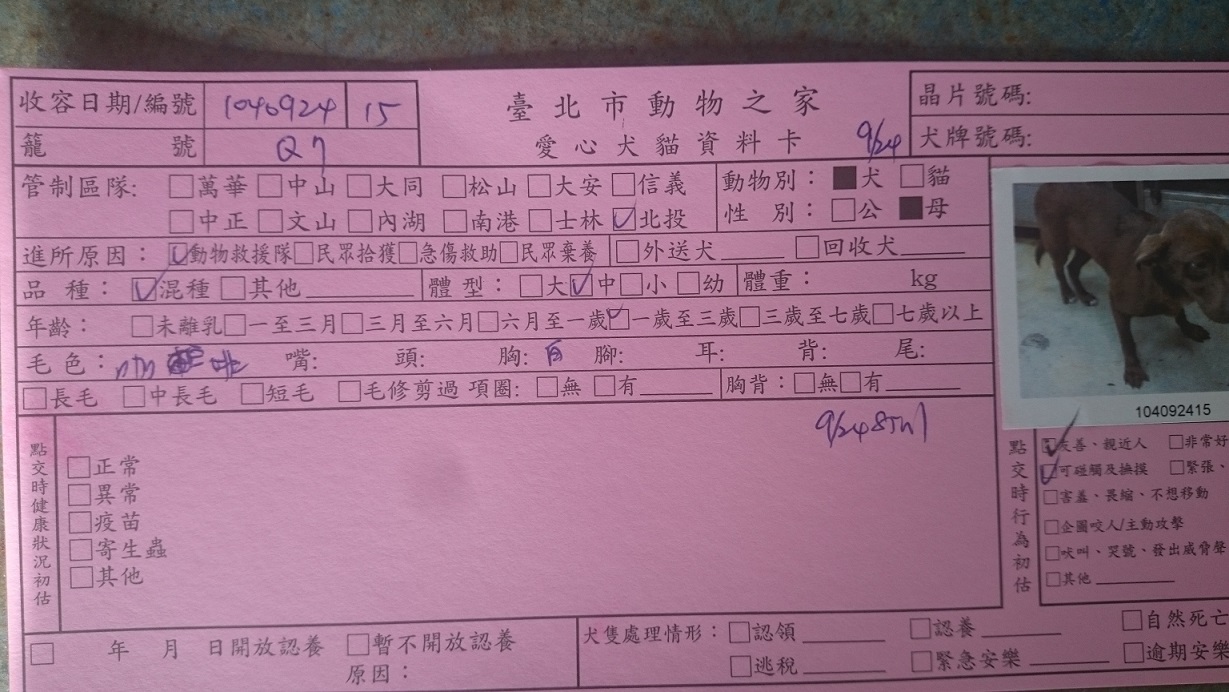 收容日期/編號 1040924 15
臺北市動物之家
晶片號碼:
籠 號 Q7
愛心犬貓資料卡 9/24
犬牌號碼:
管制區隊: □萬華 □中山 □大同 □松山 □大安 □信義
動物別: ■犬 □貓
□中正 □文山 □內湖 □南港 □士林 ☑北投
性 別: □公 ■母
進所原因: ☑動物救援隊 □民眾拾獲 □急傷救助 □民眾棄養 □外送犬 □回收犬
品 種: ☑混種 □其他 體 型: □大 ☑中 □小 □幼 體重: kg
年齡: □未離乳 □一至三月 □三月至六月 □六月至一歲 ☑一歲至三歲 □三歲至七歲 □七歲以上
毛色: 咖啡 嘴: 頭: 胸: 白 腳: 耳: 背: 尾:
□長毛 □中長毛 □短毛 □毛修剪過 項圈: □無 □有 胸背: □無 □有
104092415
點交時健康狀況初估
□正常
□異常
□疫苗
□寄生蟲
□其他
點交時行為初估
☑友善、親近人 □非常好
☑可碰觸及撫摸 □緊張、
□害羞、畏縮、不想移動
□企圖咬人/主動攻擊
□吠叫、哭號、發出威脅聲
□其他
□ 年 月 日開放認養 □暫不開放認養
原因:
犬隻處理情形: □認領 □認養 □自然死亡
□逃稅 □緊急安樂 □逾期安樂